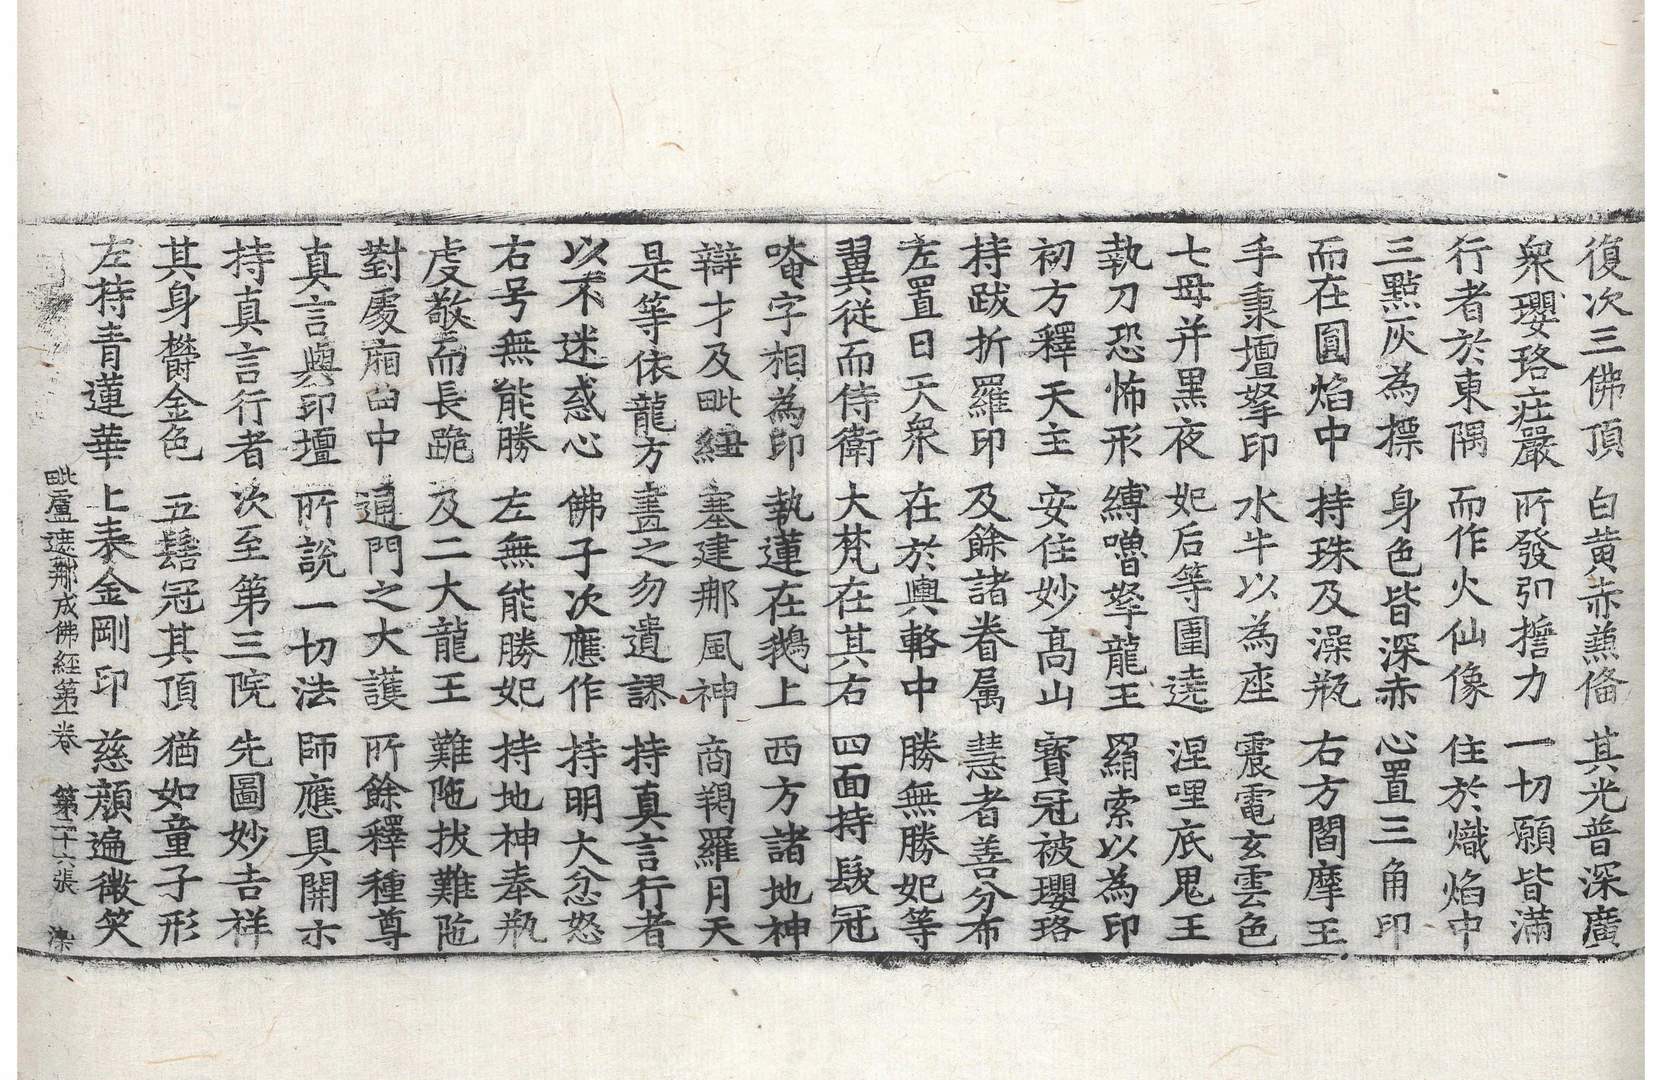 復次三佛頂　白黃赤兼俻　其光普深廣
衆瓔珞莊嚴　所發引擔力　一切願皆滿
行者於東隅　而作火仙像　住於熾焰中
三點灰為標　身色皆深赤　心置三角印
而在圓焰中　持珠及澡瓶　右方閻摩王
手秉壇拏印　水牛以為座　震電玄雲色
七母并黑夜　妃后等圍遶　涅哩底鬼王
執刀恐怖形　縛嚕拏龍王　羂索以為印
初方釋天主　安住妙髙山　寶冠被瓔珞
持跋折羅印　及餘諸眷属　慧者善分布
左置日天衆　在於輿輅中　勝無勝妃等
翼從而侍衛　大梵在其右　四面持髮冠
唵字相為印　執蓮在鵝上　西方諸地神
辯才及毗紐　塞建那風神　商羯羅月天
是等依龍方　畫之勿遺謬　持真言行者
以不迷惑心　佛子次應作　持明大忿怒
右号無能勝　左無能勝妃　持地神奉瓶
虔敬而長跪　及二大龍王　難陁拔難陁
對處廂曲中　通門之大護　所餘釋種尊
真言與印壇　所說一切法　師應具開示
持真言行者　次至第三院　先圖妙吉祥
其身鬱金色　五髻冠其頂　猶如童子形
左持青蓮華　上表金剛印　慈顏遍微笑
毗盧遮那成佛經第一卷　第二十六張